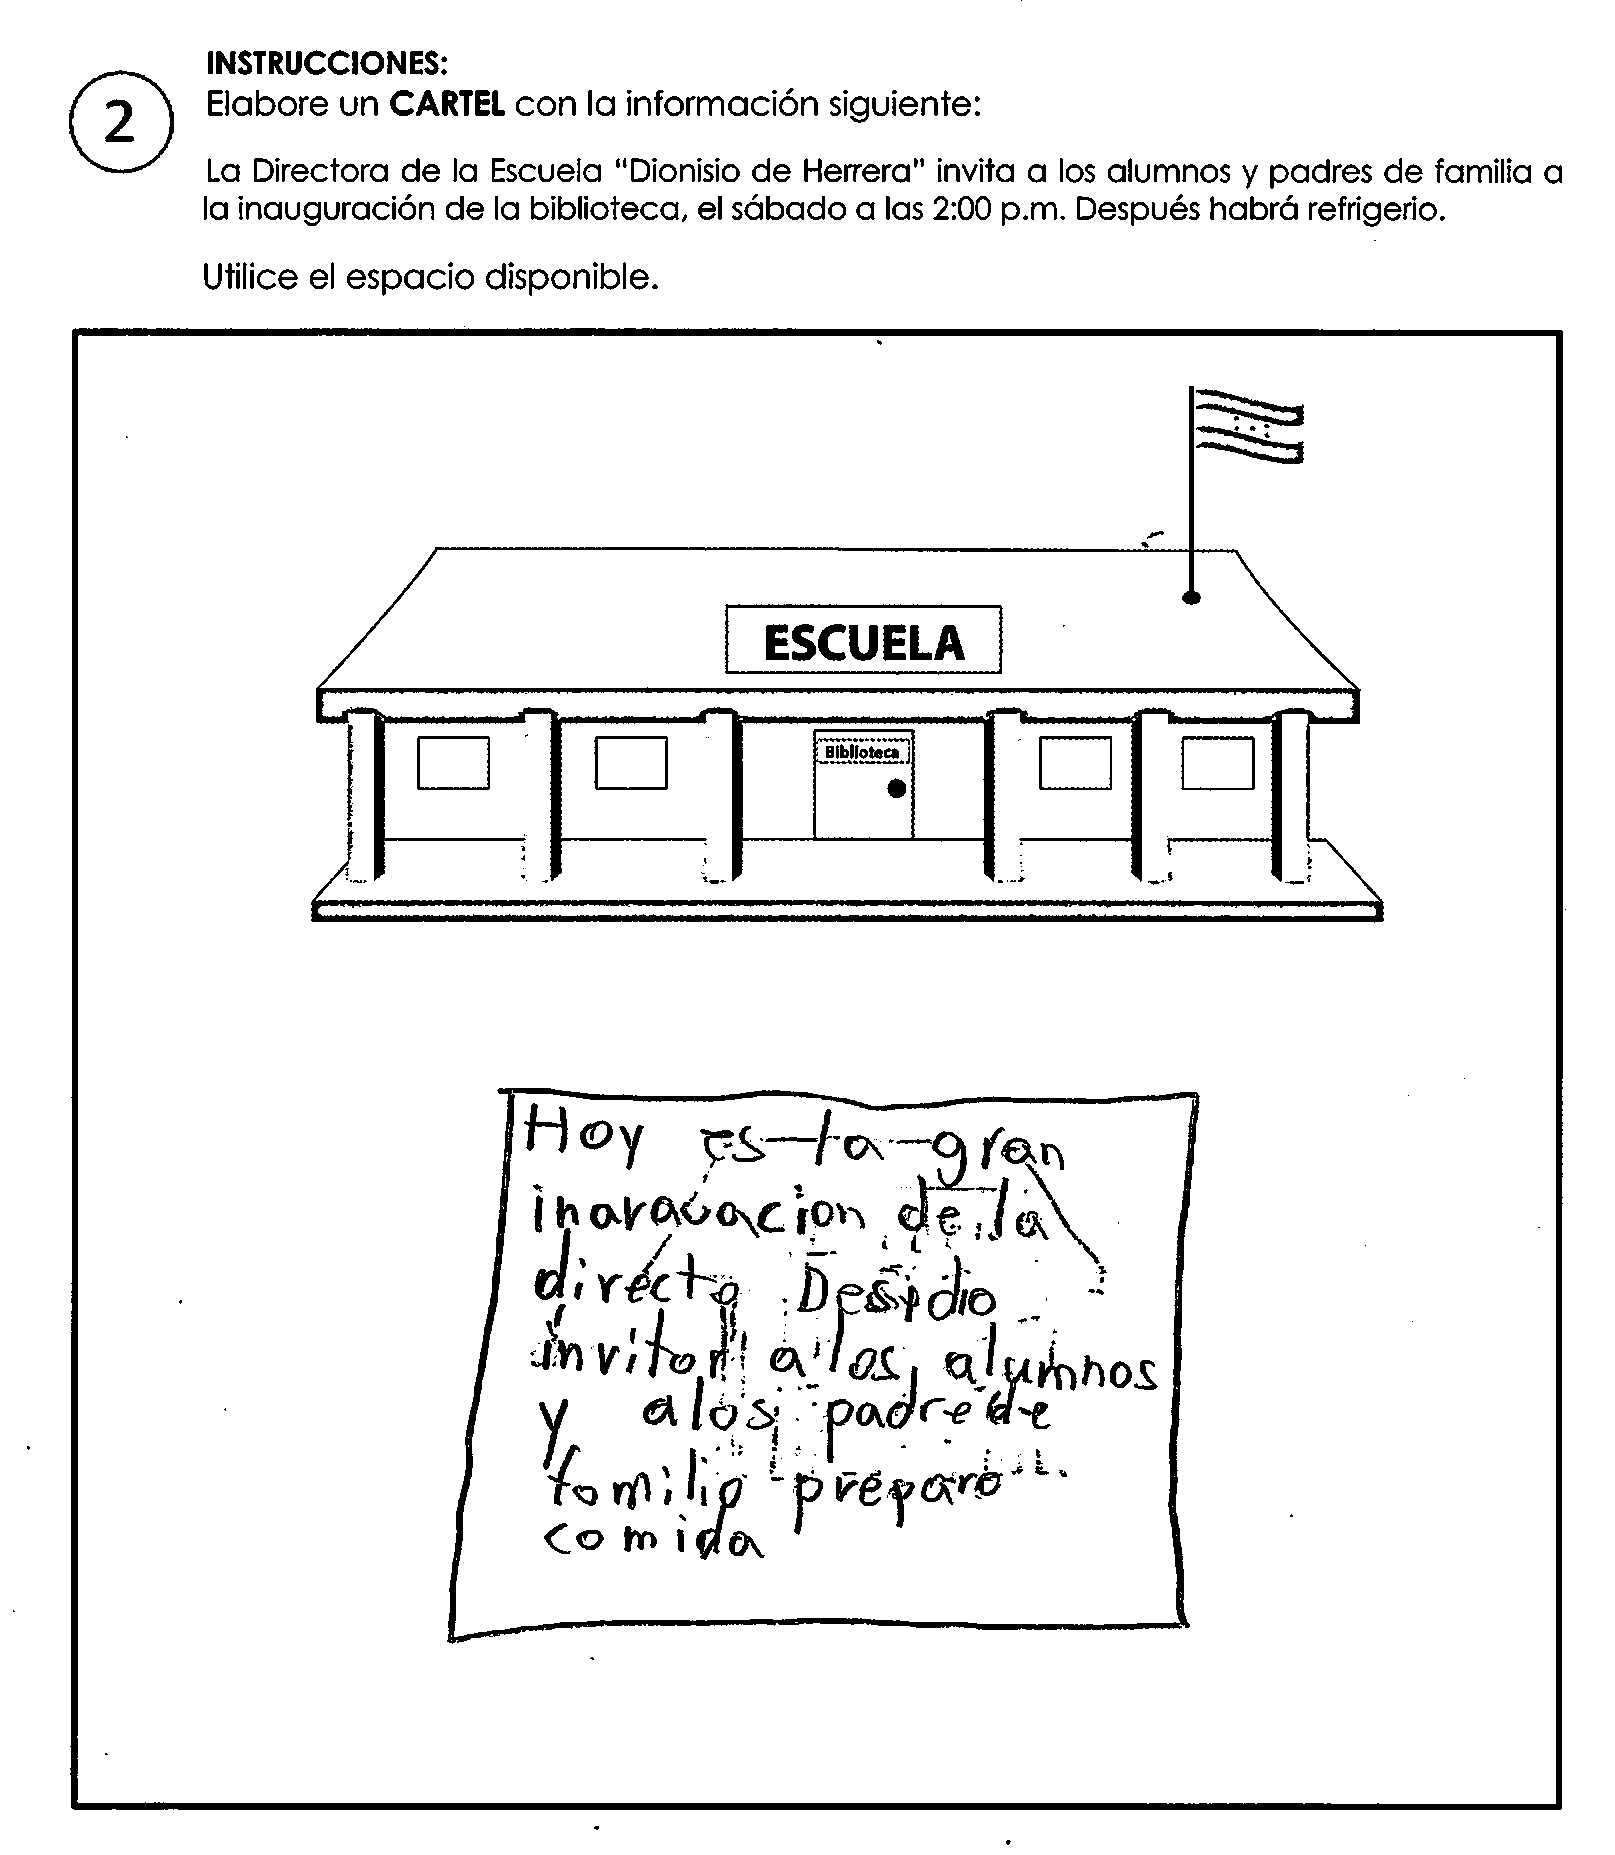 INSTRUCCIONES:
2
Elabore un CARTEL con la información siguiente:
La Directora de la Escuela "Dionisio de Herrera" invita a los alumnos y padres de familia a
la inauguración de la biblioteca, el sábado a las 2:00 p.m. Después habrá refrigerio.
Utilice el espacio disponible.
ESCUELA
Biblioteca
Hoy es la gran
inaraucacion de la
directo Desidio
inviton a los alumnos
y alos padre de
fomilio preparo
comida